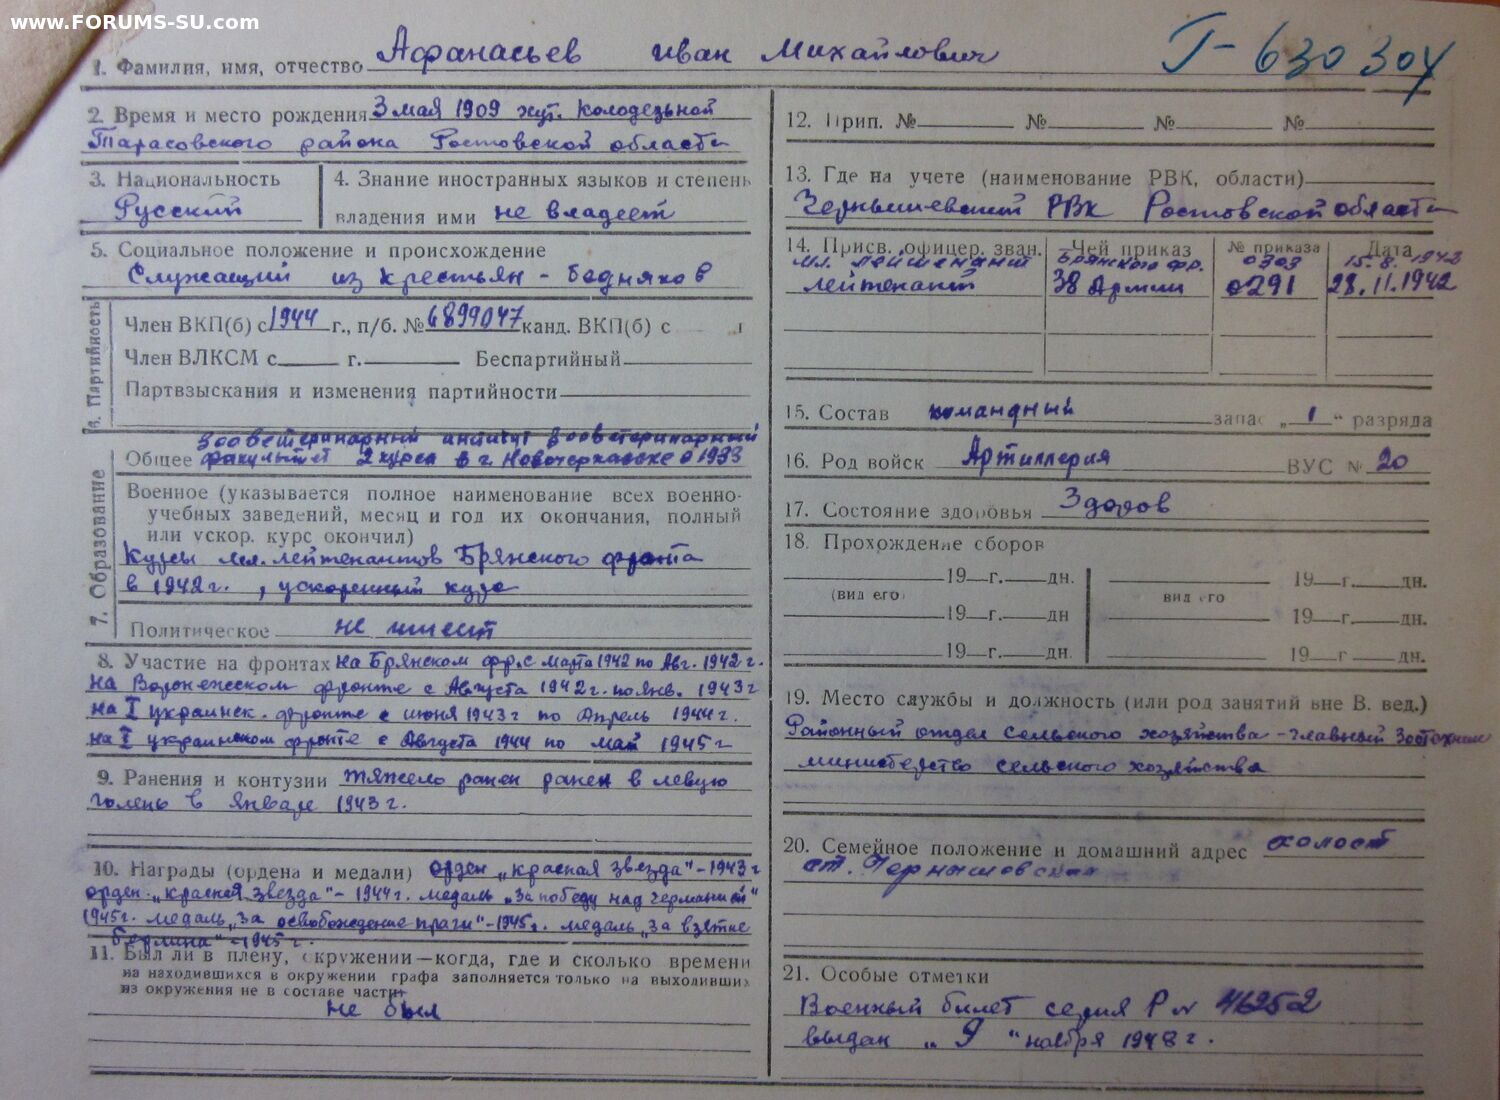 www.FORUMS-SU.com
Г-630304
1. Фамилия, имя, отчество Афанасьев Иван Михайлович
2. Время и место рождения 3 мая 1909 хут. Колодезьной
Тарасовского района Ростовской области
3. Национальность
Русский
4. Знание иностранных языков и степень
владения ими не владеет
5. Социальное положение и происхождение
Служащий из крестьян - бедняков
6. Партийность
Член ВКП(б) с 1944 г., п/б. № 6899047 канд. ВКП(б) с г
Член ВЛКСМ с г. Беспартийный
Партвзыскания и изменения партийности
7. Образование
зооветеринарный институт зооветеринарный
Общее факультет 2 курса в г. Новочеркасске в 1933
Военное (указывается полное наименование всех военно-
учебных заведений, месяц и год их окончания, полный
или ускор. курс окончил)
Курсы мл. лейтенантов Брянского фронта
в 1942 г., ускоренный курс
Политическое не имеет
8. Участие на фронтах на Брянском фр. с марта 1942 по Авг. 1942 г.
на Воронежском фронте с Августа 1942 г. по янв. 1943 г
на I украинск. фронте с июня 1943 г по Апрель 1944 г.
на I украинском фронте с Августа 1944 по май 1945 г
9. Ранения и контузии тяжело ранен ранен в левую
голень в январе 1943 г.
10. Награды (ордена и медали) орден „красная звезда"-1943 г
орден „красная звезда"- 1944 г. медаль „за победу над германией"
1945 г. медаль „за освобождение праги"-1945 г. медаль „за взятие
берлина"-1945 г.
11. Был ли в плену, окружении—когда, где и сколько времени
на находившихся в окружении графа заполняется только на выходивших
из окружения не в составе части
не был
12. Прип. № № № №
13. Где на учете (наименование РВК, области)
Чернышевский РВК Ростовской области
14. Присв. офицер. зван. Чей приказ № приказа Дата
мл. лейтенант Брянского фр. 0303 15.8.1942
лейтенант 38 Армии 0291 28.11.1942
15. Состав командный запас „1" разряда
16. Род войск Артиллерия ВУС № 20
17. Состояние здоровья Здоров
18. Прохождение сборов
19 г. дн. 19 г. дн.
(вид его) вид его
19 г. дн 19 г. дн.
19 г. дн. 19 г дн.
19. Место службы и должность (или род занятий вне В. вед.)
Районный отдел сельского хозяйства - главный зоотехник
министерство сельского хозяйства
20. Семейное положение и домашний адрес холост
ст. Чернышевская
21. Особые отметки
Военный билет серия Р № 46252
выдан „9" ноября 1948 г.